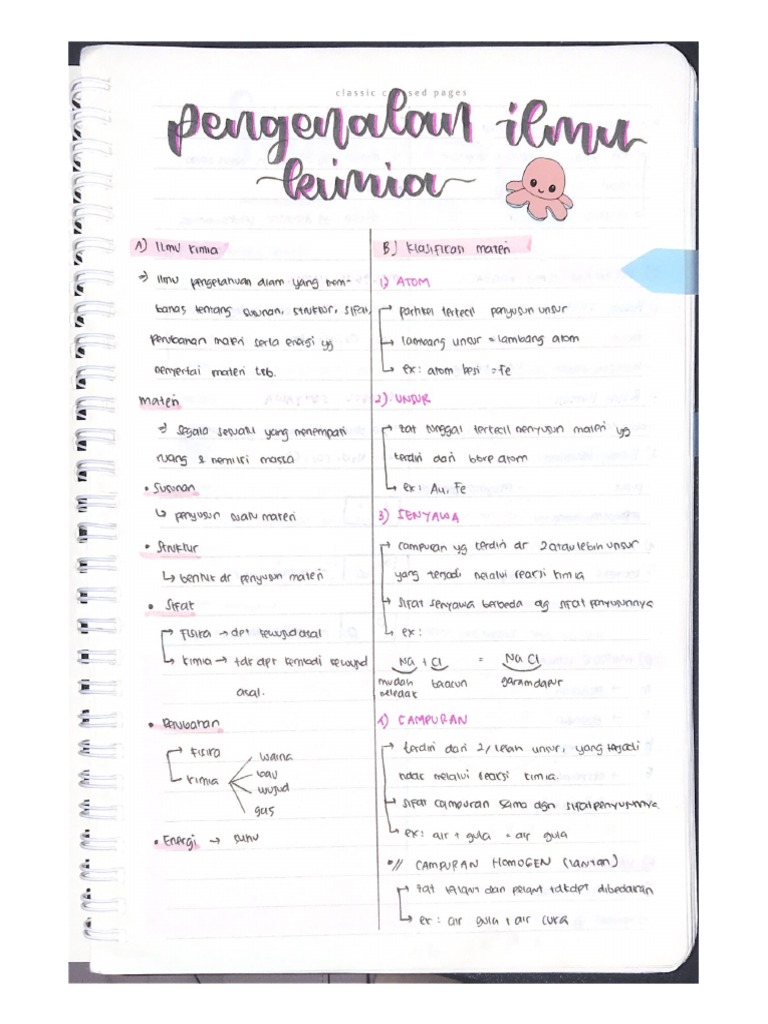 classic c sed pages
pengenalan ilmu
kimia
A) Ilmu kimia
⇒ Ilmu pengetahuan alam yang mem-
bahas tentang susunan, struktur, sifat,
perubahan materi serta energi yg
menyertai materi tsb.
materi
⇒ segala sesuatu yang menempati
ruang & memiliki massa
• Susunan
↳ penyusun suatu materi
• Struktur
↳ bentuk dr penyusun materi
• Sifat
Fisika → dpt kewujud asal
kimia → tdk dpt kembali kewujud
asal.
• Perubahan
Fisika
kimia
warna
bau
wujud
gas
• Energi → suhu
B) Klasifikasi materi
1) ATOM
partikel terkecil penyusun unsur
lambang unsur = lambang atom
ex: atom besi = Fe
2) UNSUR
zat tunggal terkecil menyusun materi yg
terdiri dari bbrp atom
ex: Au, Fe
3) SENYAWA
campuran yg terdiri dr 2 atau lebih unsur
yang terjadi melalui reaksi kimia
sifat senyawa berbeda dg sifat penyusunnya
ex:
Na + Cl = Na Cl
mudah meledak racun garam dapur
4) CAMPURAN
terdiri dari 2/lebih unsur, yang terjadi
tidak melalui reaksi kimia.
sifat campuran sama dgn sifat penyusunnya.
ex: air + gula = air gula
*// CAMPURAN HOMOGEN (larutan)
zat terlarut dan pelarut tdk dpt dibedakan
ex: air gula & air cuka